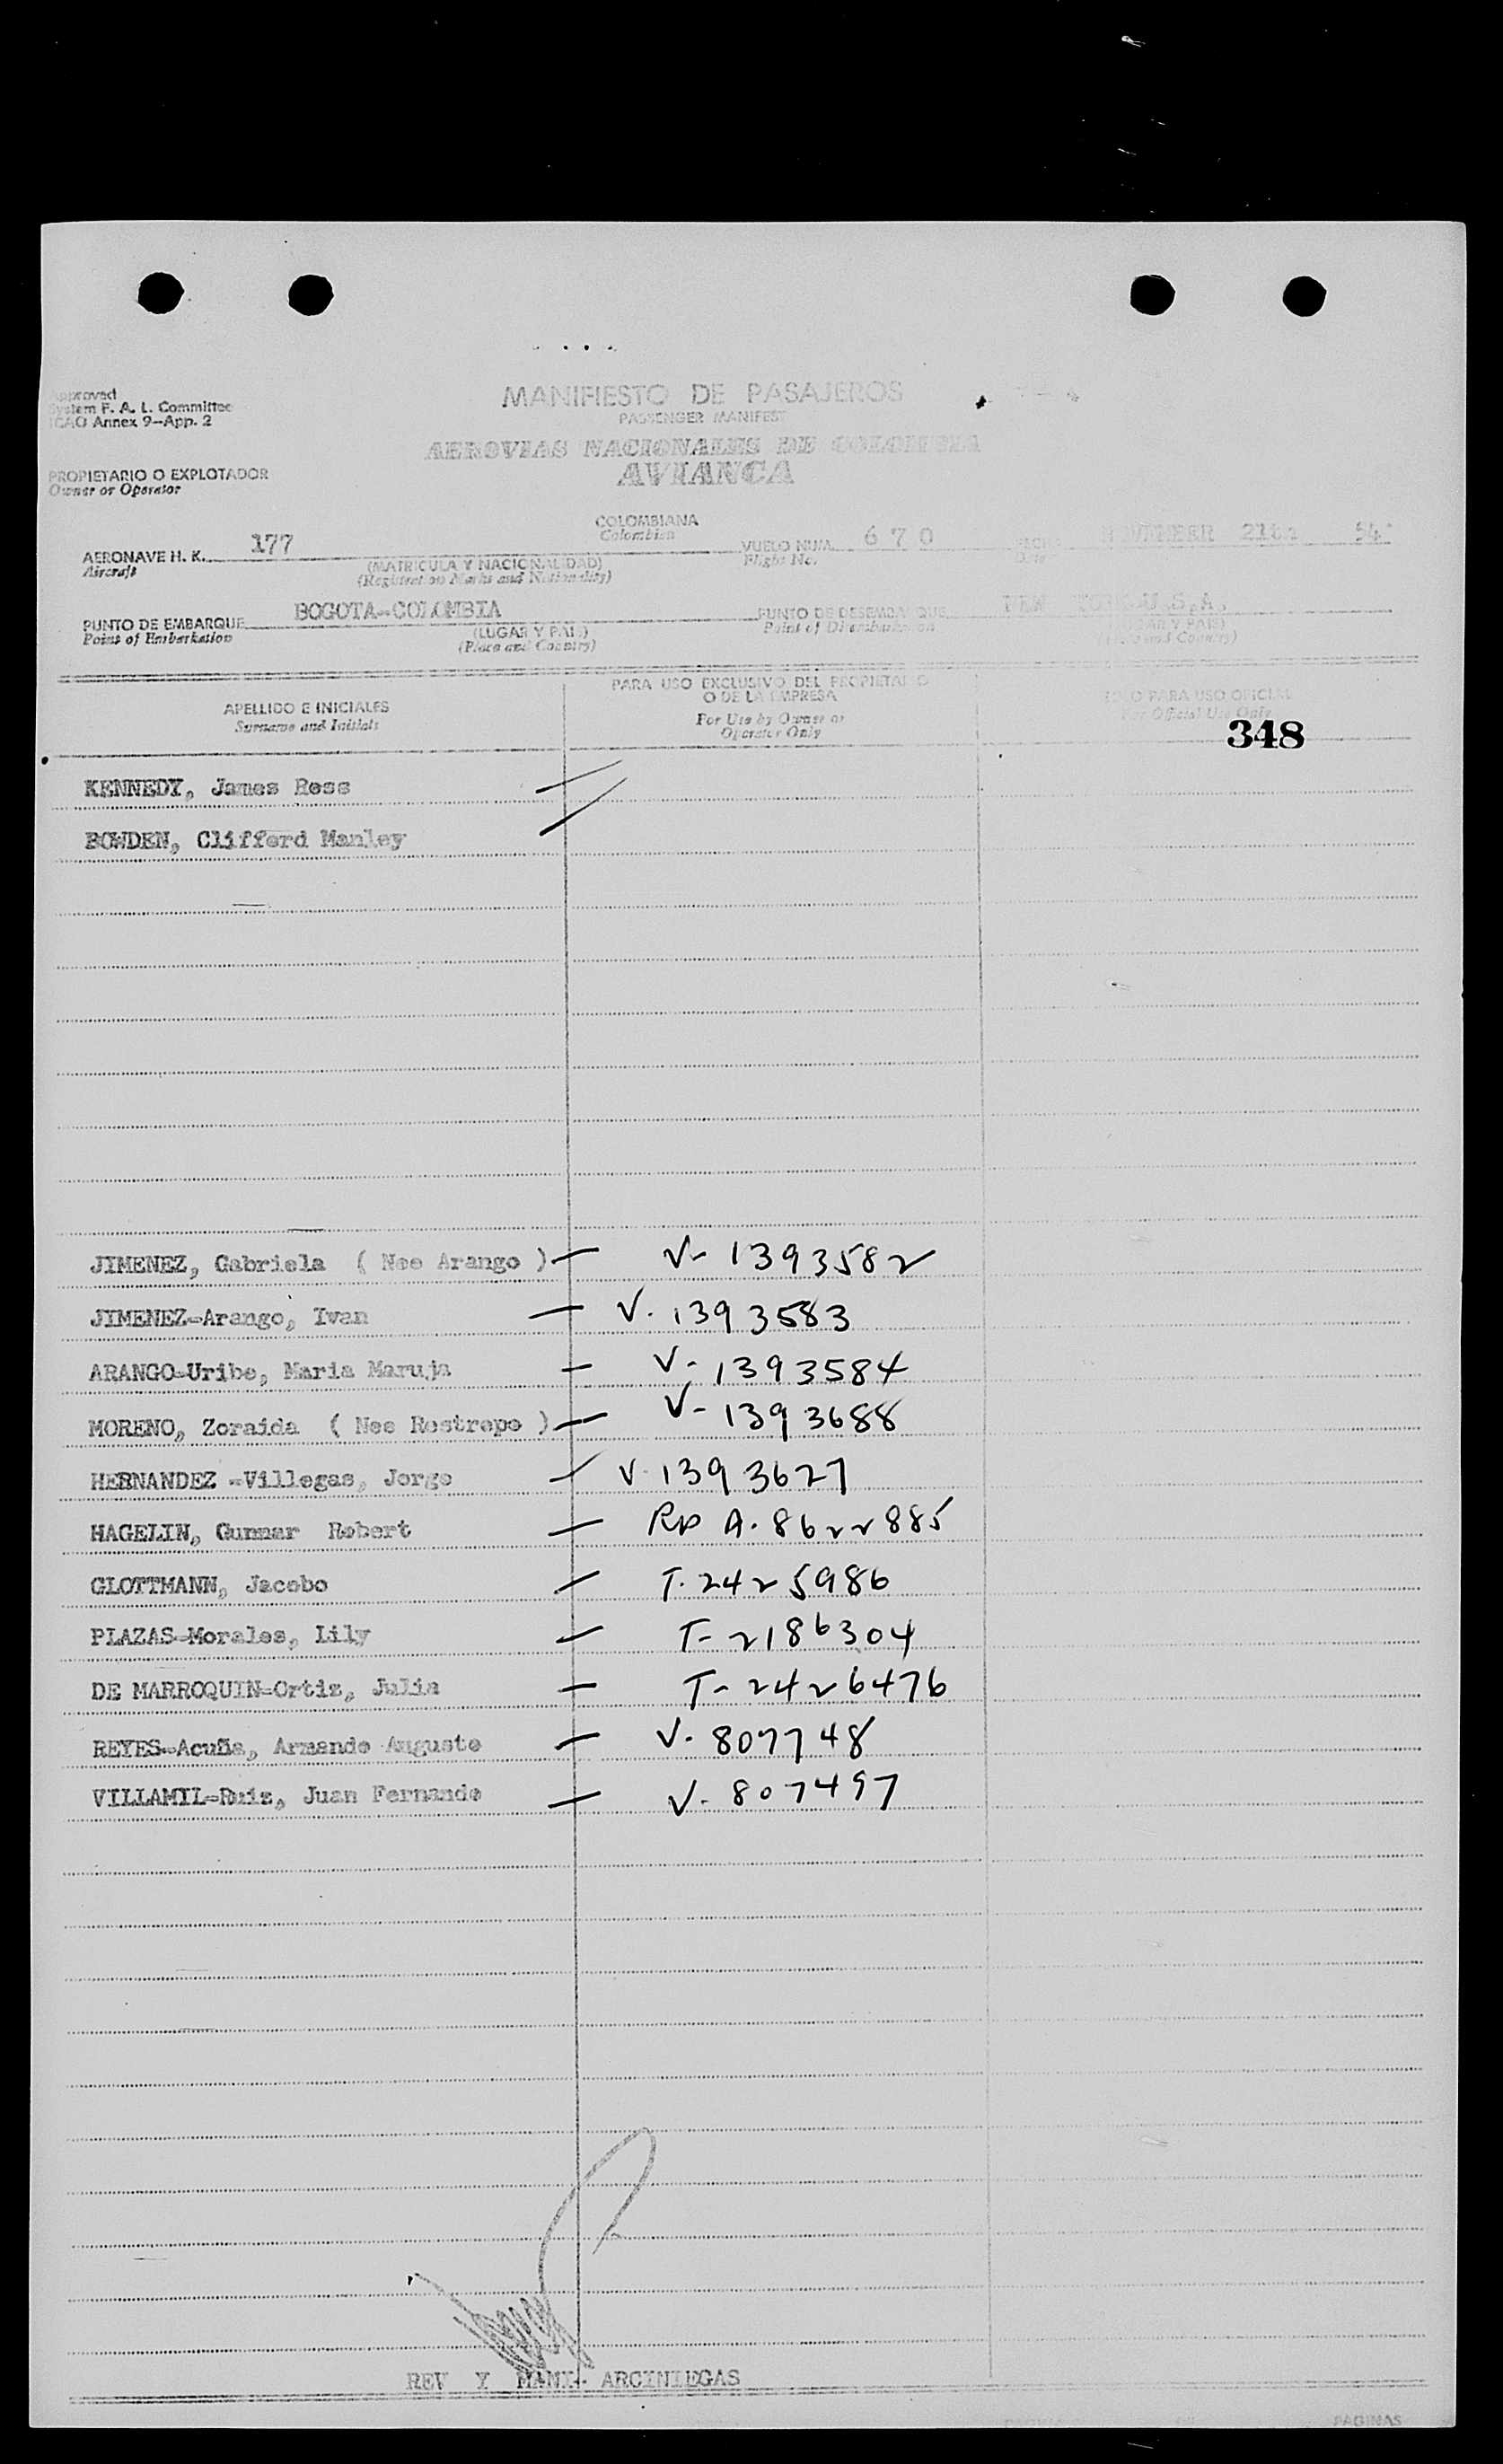 Approved
System F. A. L. Committee
ICAO Annex 9-App. 2
MANIFIESTO DE PASAJEROS
PASSENGER MANIFEST
AEROVIAS NACIONALES DE COLOMBIA
AVIANCA
PROPIETARIO O EXPLOTADOR
Owner or Operator
COLOMBIANA
Colombian
AERONAVE H. K. 177
Aircraft
(MATRICULA Y NACIONALIDAD)
(Registration Marks and Nationality)
VUELO NUM. 670
Flight No.
NOVEMBER 21th 54
PUNTO DE EMBARQUE BOGOTA-COLOMBIA
Point of Embarkation
(LUGAR Y PAIS)
(Place and Country)
PUNTO DE DESEMBARQUE NEW YORK-U.S.A.
Point of Disembarkation
(LUGAR Y PAIS)
(Place and Country)
APELLIDO E INICIALES
Surname and Initials
PARA USO EXCLUSIVO DEL PROPIETARIO
O DE LA EMPRESA
For Use by Owner or
Operator Only
SOLO PARA USO OFICIAL
For Official Use Only
348
KENNEDY, James Ross
BOWDEN, Clifford Manley
JIMENEZ, Gabriela ( Nee Arango ) V- 1393582
JIMENEZ-Arango, Ivan V. 1393583
ARANGO-Uribe, Maria Maruja V- 1393584
MORENO, Zoraida ( Nee Restrepo ) V- 1393688
HERNANDEZ -Villegas, Jorge V. 1393627
HAGELIN, Gunnar Robert RP A. 8622885
GLOTTMANN, Jacobo T. 2425986
PLAZAS-Morales, Lily T- 2186304
DE MARROQUIN-Ortiz, Julia T- 2426476
REYES-Acuña, Armando Augusto V. 807748
VILLAMIL-Ruiz, Juan Fernando V- 807497
REV Y MANI- ARCINIEGAS
PAGINAS